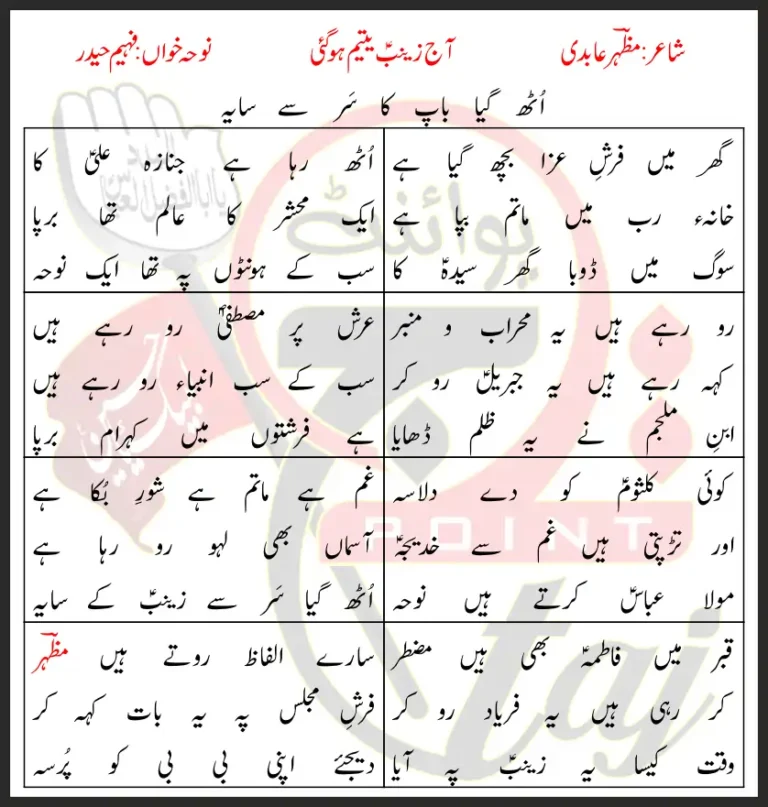 شاعر: مظہرؔ عابدی
آج زینبؑ یتیم ہوگئی
نوحہ خواں: فہیم حیدر
اُٹھ گیا باپ کا سَر سے سایہ
گھر میں فرشِ عزا بچھ گیا ہے
خانہء رب میں ماتم بپا ہے
سوگ میں ڈوبا گھر سیدہؑ کا
اُٹھ رہا ہے جنازہ علیؑ کا
ایک محشر کا عالم تھا برپا
سب کے ہونٹوں پہ تھا ایک نوحہ
رو رہے ہیں یہ محراب و منبر
کہہ رہے ہیں یہ جبریلؑ رو کر
ابنِ ملجم نے یہ ظلم ڈھایا
عرش پر مصطفیٰؐ رو رہے ہیں
سب کے سب انبیاء رو رہے ہیں
ہے فرشتوں میں کہرام برپا
کوئی کلثومؑ کو دے دلاسہ
اور تڑپتی ہیں غم سے خدیجہؑ
مولا عباسؑ کرتے ہیں نوحہ
غم ہے ماتم ہے شورِ بُکا ہے
آسماں بھی لہو رو رہا ہے
اُٹھ گیا سَر سے زینبؑ کے سایہ
قبر میں فاطمہؑ بھی ہیں مضطر
کر رہی ہیں یہ فریاد رو کر
وقت کیسا یہ زینبؑ پہ آیا
سارے الفاظ روتے ہیں مظہرؔ
فرشِ مجلس پہ یہ بات کہہ کر
دیجئے اپنی بی بی کو پُرسہ
پوائنٹ
POINT
taj